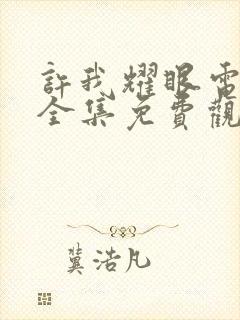 許我耀眼電
全集免費觀
冀浩凡